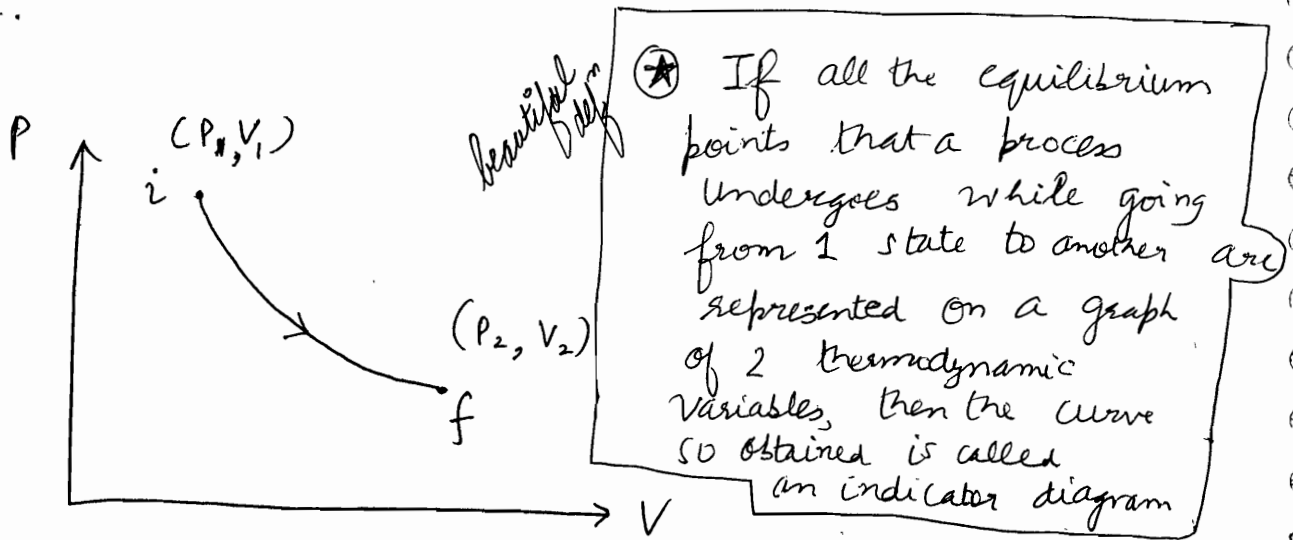 P
(P₁, V₁)
i
(P₂, V₂)
f
V
beautiful
defⁿ
★ If all the equilibrium
points that a process
undergoes while going
from 1 state to another are
represented on a graph
of 2 thermodynamic
variables, then the curve
so obtained is called
an indicator diagram